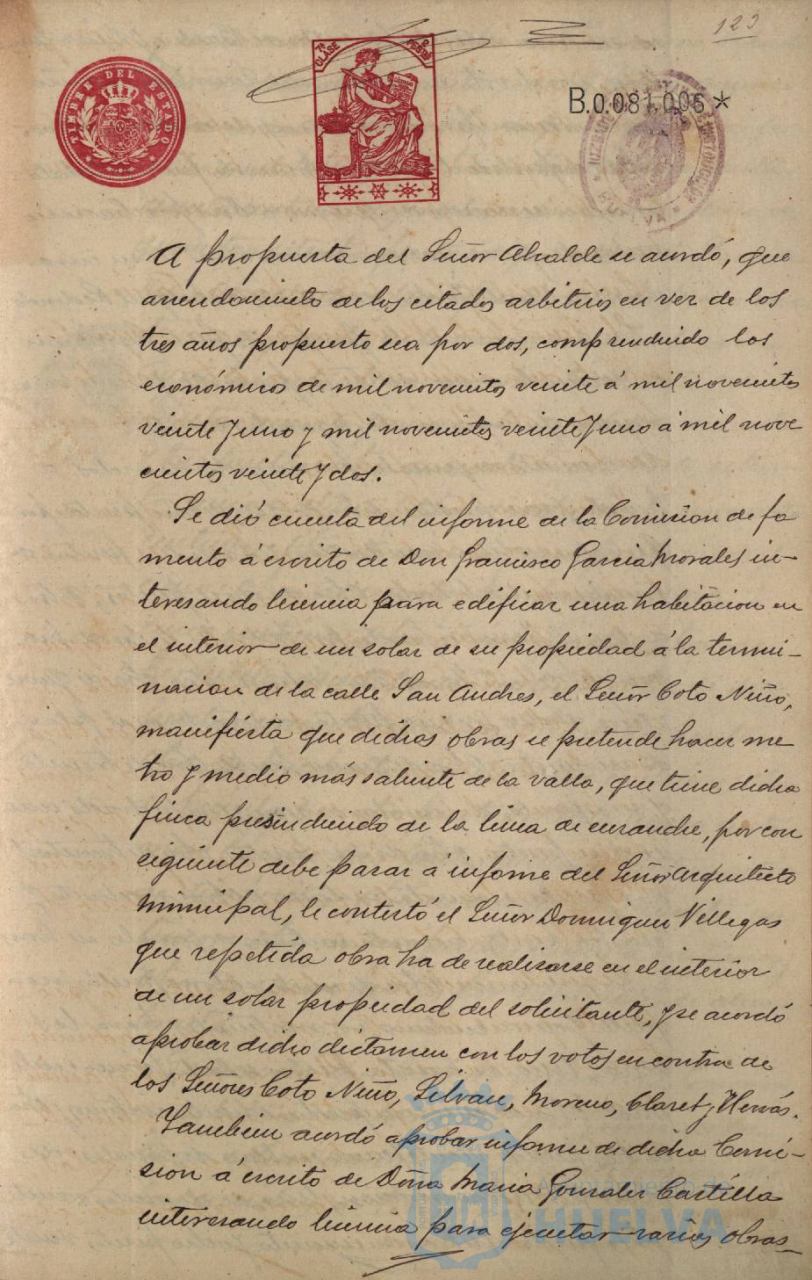 123
TIMBRE DEL ESTADO
7ª CLASE
2 PESETAS
B.0.081.006*
HUELVA
A propuesta del Señor Alcalde se acordó, que
arrendamiento de los citados arbitrios en vez de los
tres años propuesto sea por dos, comprendiendo los
económicos de mil novecientos veinte á mil novecientos
veinte y uno y mil novecientos veinte y uno á mil nove
cientos veinte y dos.
Se dió cuenta del informe de la Comision de fo
mento á escrito de Don Francisco Garcia Morales in-
teresando licencia para edificar una habitacion en
el interior de un solar de su propiedad á la termi-
nacion de la calle San Andres, el Señor Coto Niño,
manifiesta que dichas obras se pretende hacer me
tro y medio más saliente de la valla, que tiene dicha
finca presindiendo de la linea de ensanche, por con
siguiente debe pasar á informe del Señor Arquitecto
Municipal, le contestó el Señor Dominguez Villegas
que repetida obra ha de realizarse en el interior
de un solar propiedad del solicitante, y se acordó
aprobar dicho dictamen con los votos en contra de
los Señores Coto Niño, Silvan, Moreno, Claret y Hervás.
Tambien acordó aprobar informe de dicha Comi-
sion á escrito de Doña Maria Gonzalez Castilla
interesando licencia para ejecutar varias obras
HUELVA